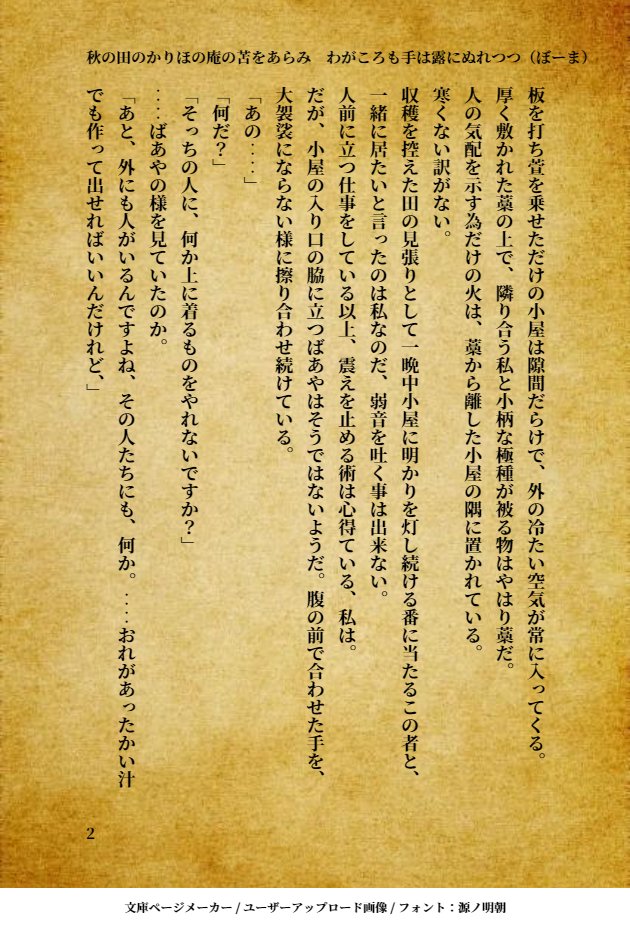 秋の田のかりほの庵の苫をあらみ　わがころも手は露にぬれつつ（ぼーま）
板を打ち萱を乗せただけの小屋は隙間だらけで、外の冷たい空気が常に入ってくる。
厚く敷かれた藁の上で、隣り合う私と小柄な極種が被る物はやはり藁だ。
人の気配を示す為だけの火は、藁から離した小屋の隅に置かれている。
寒くない訳がない。
収穫を控えた田の見張りとして一晩中小屋に明かりを灯し続ける番に当たるこの者と、
一緒に居たいと言ったのは私なのだ、弱音を吐く事は出来ない。
人前に立つ仕事をしている以上、震えを止める術は心得ている、私は。
だが、小屋の入り口の脇に立つばあやはそうではないようだ。腹の前で合わせた手を、
大袈裟にならない様に擦り合わせ続けている。
「あの‥‥」
「何だ？」
「そっちの人に、何か上に着るものをやれないですか？」
‥‥ばあやの様を見ていたのか。
「あと、外にも人がいるんですよね、その人たちにも、何か。‥‥おれがあったかい汁
でも作って出せればいいんだけれど、」
2
文庫ページメーカー / ユーザーアップロード画像 / フォント：源ノ明朝